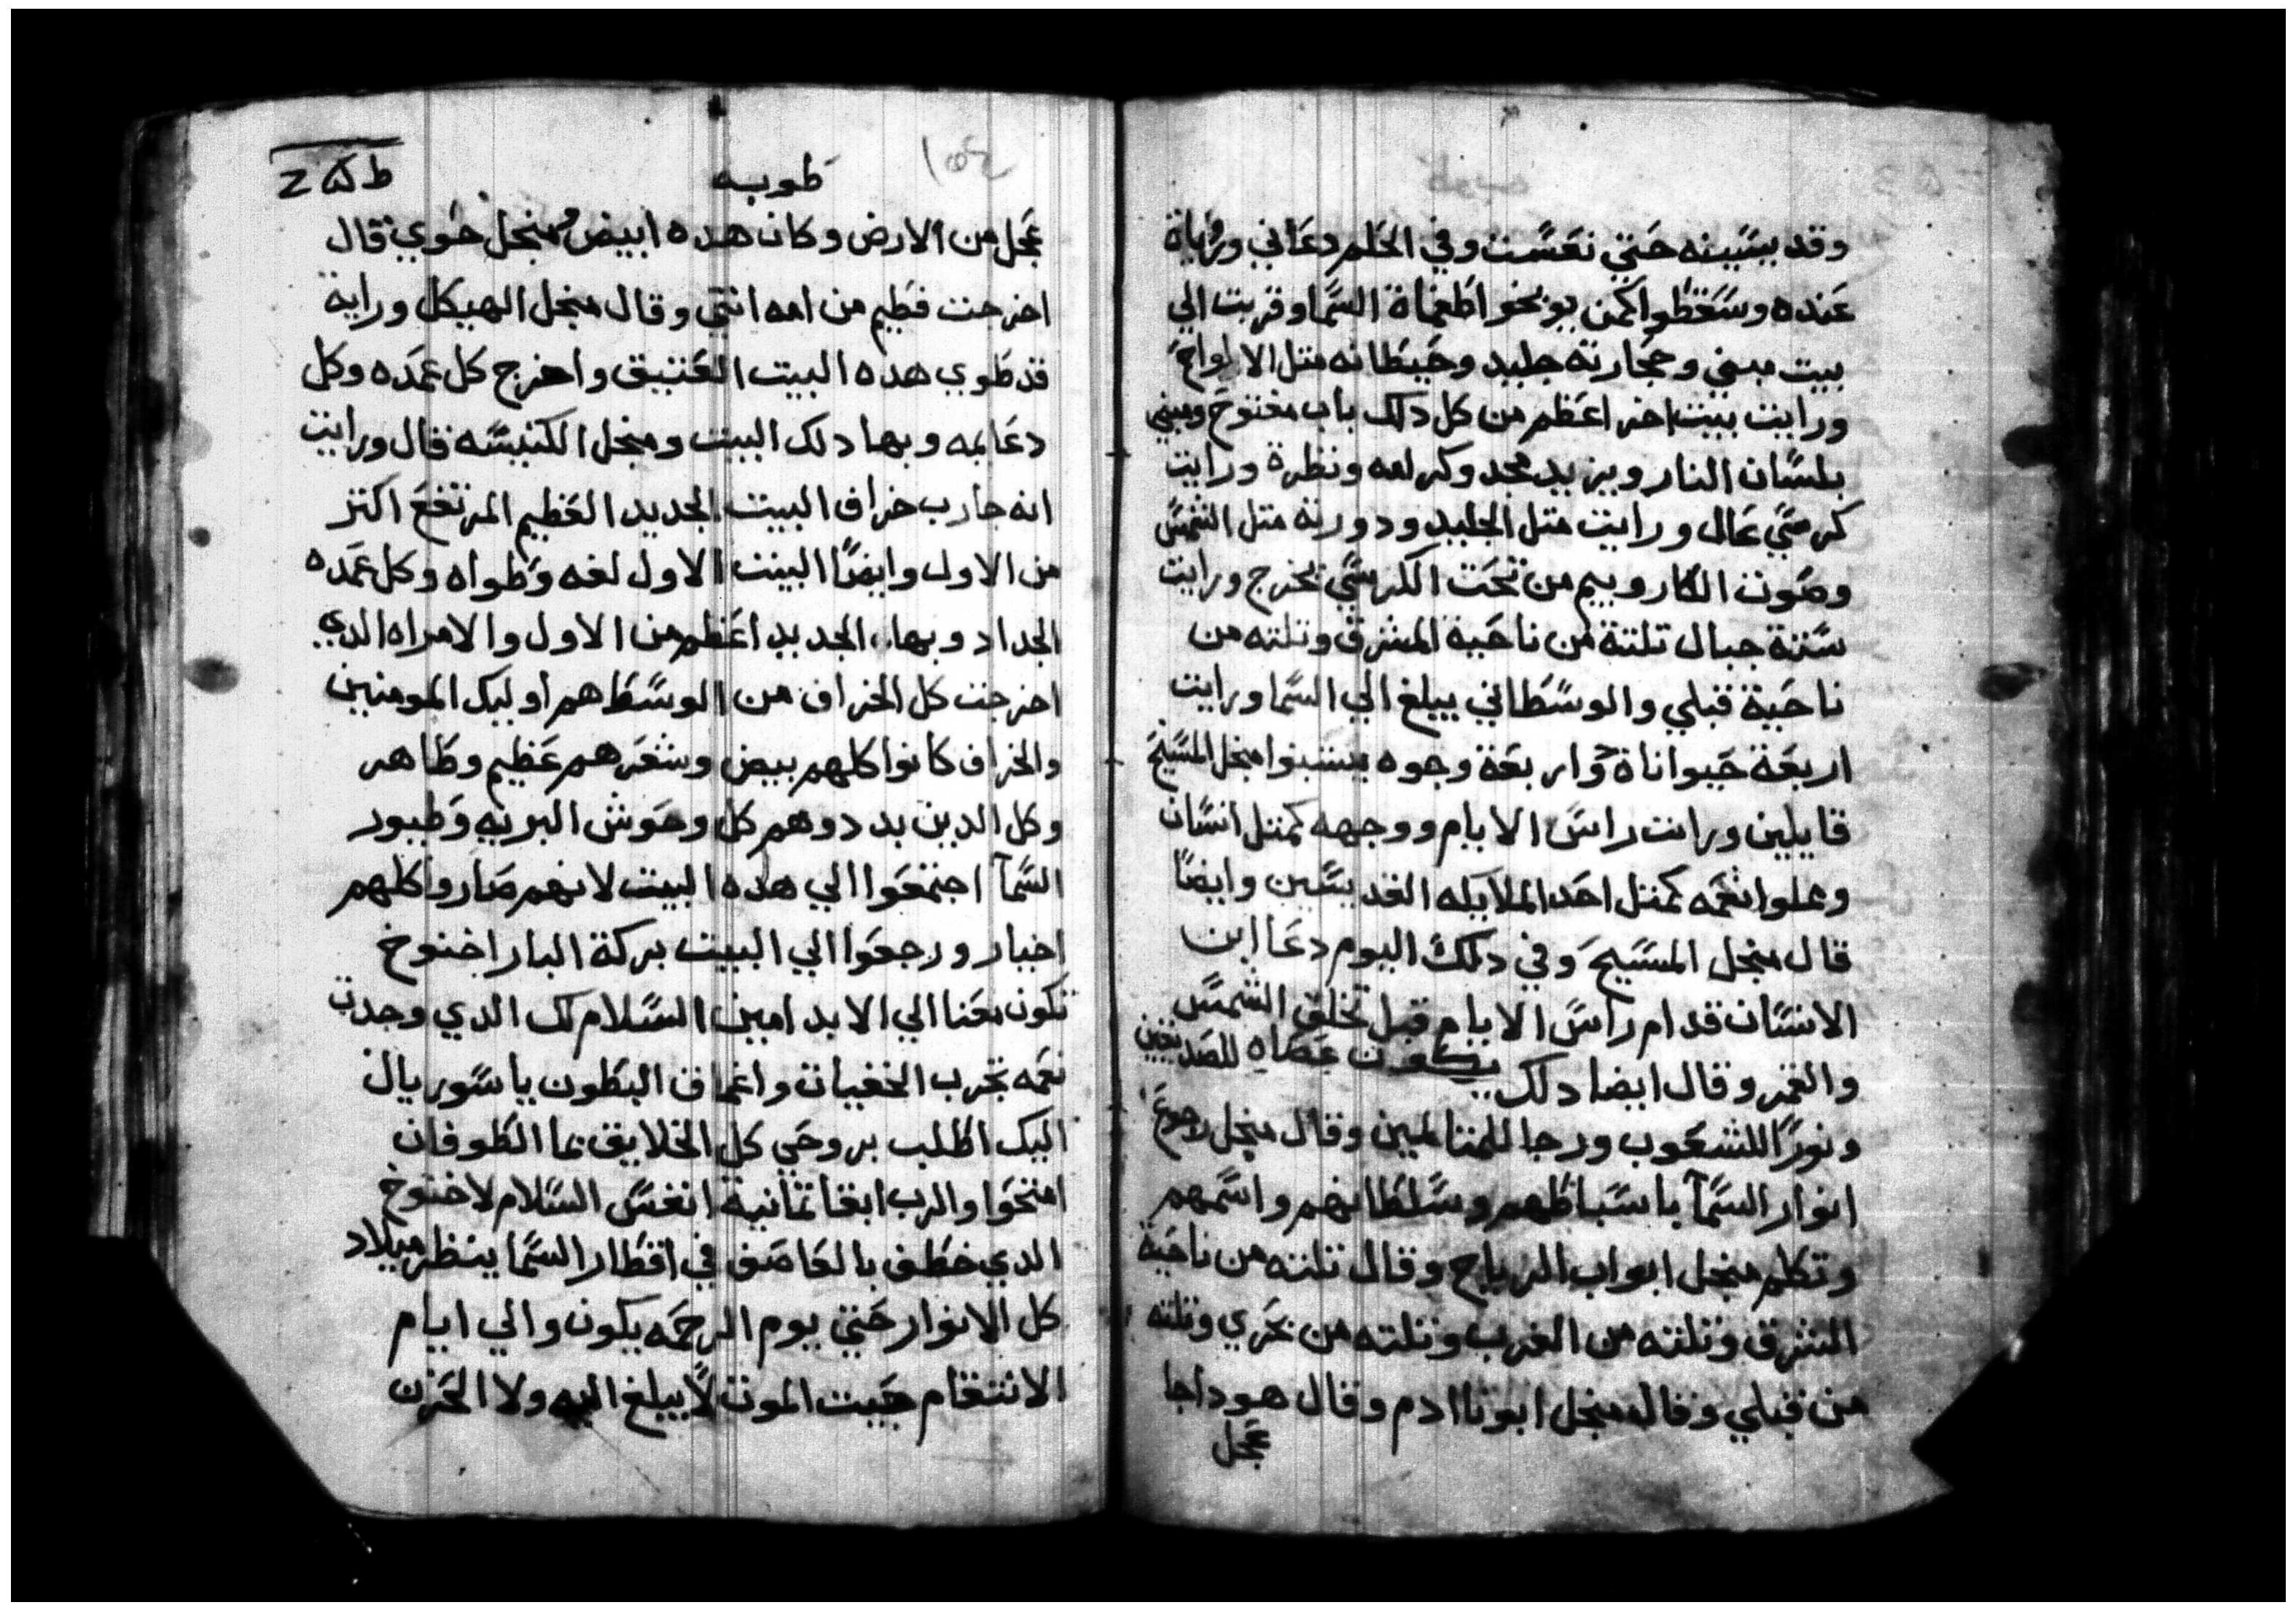 وقد بيتيته حتي نعست وفي الحلم دعاني ورياة
عنده وسقطوا كمن يوبخوا طغماة السما وقربت الي
بيت مبني وحجارته جليد وحيطانه متل الالواح
ورايت بيت اخر اعظم من كل دلك باب مفتوح ومبني
بلسان النار ويزيد مجد وكرامه ونظرة ورايت
كرسي عال ورايت متل الجليد ودورته متل الشمس
وصوت الكاروبيم من تحت الكرسي تخرج ورايت
ستة جبال تلتة من ناحية المشرق وتلته من
ناحية قبلي والوسطاني يبلغ الي السما ورايت
اربعة حيواناة واربعة وجوه يسبنوا منجل المسيح
قايلين ورات راس الايام ووجهه كمتل انسان
وعلوا نعمه كمتل احد الملايكه القديسين وايضا
قال منجل المسيح وفي دلك اليوم دعا ابن
الانسان قدام راس الايام قبل تخلق الشمس
والقمر وقال ايضا دلك يكون عصاه للصديقين
ونورا للشعوب ورجا للمتالمين وقال منجل رجوع
انوار السما باسباطهم وسلطانهم واسمهم
وتكلم منجل ابواب الرياح وقال تلته من ناحية
المشرق وتلته من الغرب وتلته من بحري وتلته
من قبلي وقال منجل ابونا ادم وقال هوداجا
عجل
طوبه
عجل من الارض وكان هده ابيض ومنجل حوي قال
اخرجت فطيم من امه انتي وقال منجل الهيكل وراية
قد طوي هده البيت العتيق واخرج كل عمده وكل
دعايمه وبها دلك البيت ومنجل الكنيسه قال ورايت
انه جارب خراف البيت الجديد العظيم المرتفع اكتر
من الاول وايضا البيت الاول لفه وطواه وكل عمده
الجداد وبها الجديد اعظم من الاول والامراه الدي
اخرجت كل الخراف من الوسط هم اوليك المومنين
والخراف كانوا كلهم بيض وشعرهم عظيم وطاهر
وكل الدين بددوهم كل وحوش البريه وطيور
السمآ اجتمعوا الي هده البيت لانهم صاروا كلهم
اخيار ورجعوا الي البيت بركة البار اخنوخ
تكون معنا الي الابد امين السلام لك الدي وجدت
نعمه تجرب الخفيات واعماق البطون يا سوريال
اليك اطلب بروحي كل الخلايق بما الطوفان
امتحوا والرب ابقا تمانية انفس السلام لاخنوخ
الدي خطف بالعاصف في اقطار السما ينظر ميلاد
كل الانوار حتي يوم الرحمه يكون والي ايام
الانتقام حيت الموت لا يبلغ اليه ولا الحزن